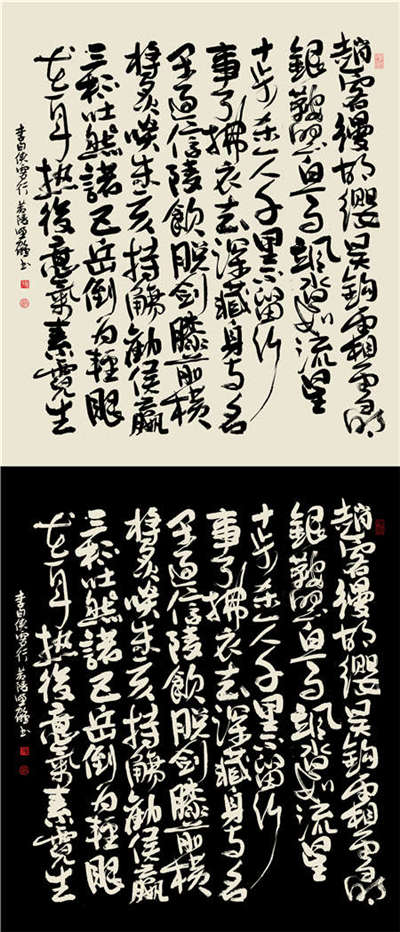 趙客縵胡纓吳鉤霜雪明
銀鞍照白馬颯沓如流星
十步杀一人千里不留行
事了拂衣去深藏身与名
閑過信陵飲脱剑膝前横
将炙啖朱亥持觴勸侯嬴
三杯吐然諾五岳倒为輕眼
花耳热後意氣素霓生
李白侠客行
趙客縵胡纓吳鉤霜雪明
銀鞍照白馬颯沓如流星
十步杀一人千里不留行
事了拂衣去深藏身与名
閑過信陵飲脱剑膝前横
将炙啖朱亥持觴勸侯嬴
三杯吐然諾五岳倒为輕眼
花耳热後意氣素霓生
李白侠客行